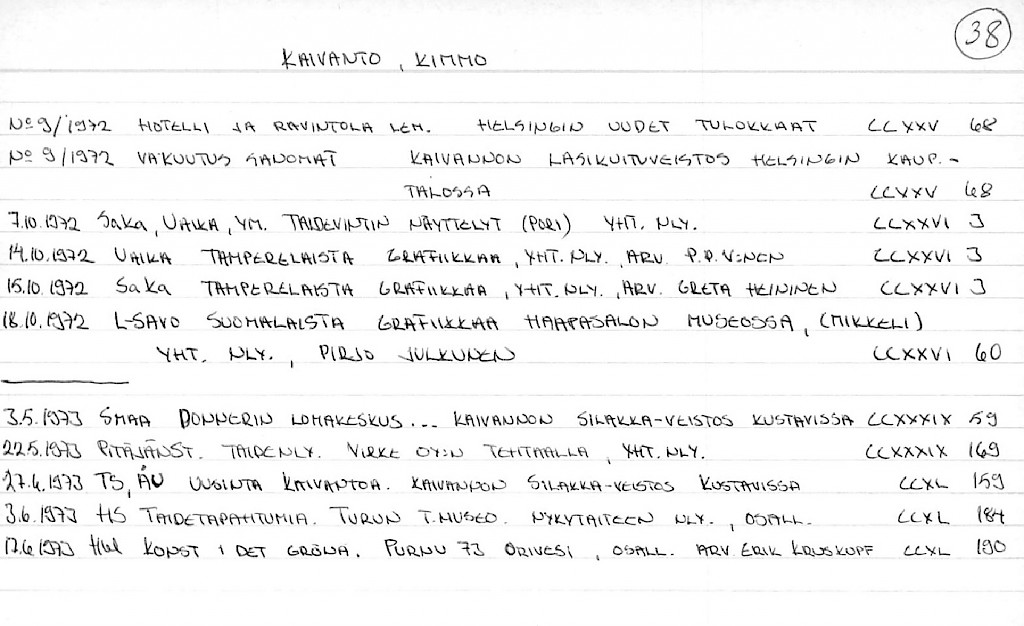 38
KAIVANTO, KIMMO
No 9/1972 HOTELLI JA RAVINTOLA LEM. HELSINGIN UUDET TULOKKAAT CCXXV 68
No 9/1972 VAKUUTUS SANOMAT KAIVANNON LASIKUITUVEISTOS HELSINGIN KAUP.-
TALOSSA CCXXV 68
7.10.1972 SaKa, UAIKA, YM. TAIDEVINTIN NÄYTTELYT (PORI) YHT. NLY. CCXXVI 3
14.10.1972 UAIKA TAMPERELAISTA GRAFIIKKAA, YHT. NLY. ARV. P.P. V:NEN CCXXVI 3
15.10.1972 SaKa TAMPERELAISTA GRAFIIKKAA, YHT. NLY., ARV. GRETA HEININEN CCXXVI 3
18.10.1972 L-SAVO SUOMALAISTA GRAFIIKKAA HAAPASALON MUSEOSSA, (MIKKELI)
YHT. NLY., PIRJO JULKUNEN CCXXVI 60
3.5.1973 SMAA DONNERIN LOMAKESKUS... KAIVANNON SILAKKA-VEISTOS KUSTAVISSA CCXXXIX 59
22.5.1973 PITÄJÄNST. TAIDENLY. VIRKE OY:N TEHTAALLA, YHT. NLY. CCXXXIX 169
27.6.1973 TS, ÅU UUSINTA KAIVANTOA. KAIVANNON SILAKKA-VEISTOS KUSTAVISSA CCXL 159
3.6.1973 HS TAIDETAPAHTUMIA. TURUN T.MUSEO. NYKYTAITEEN NLY., OSALL. CCXL 184
17.6.1973 Hbl KONST I DET GRÖNA. PURNU 73 ORIVESI, OSALL. ARV. ERIK KRUSKOPF CCXL 190